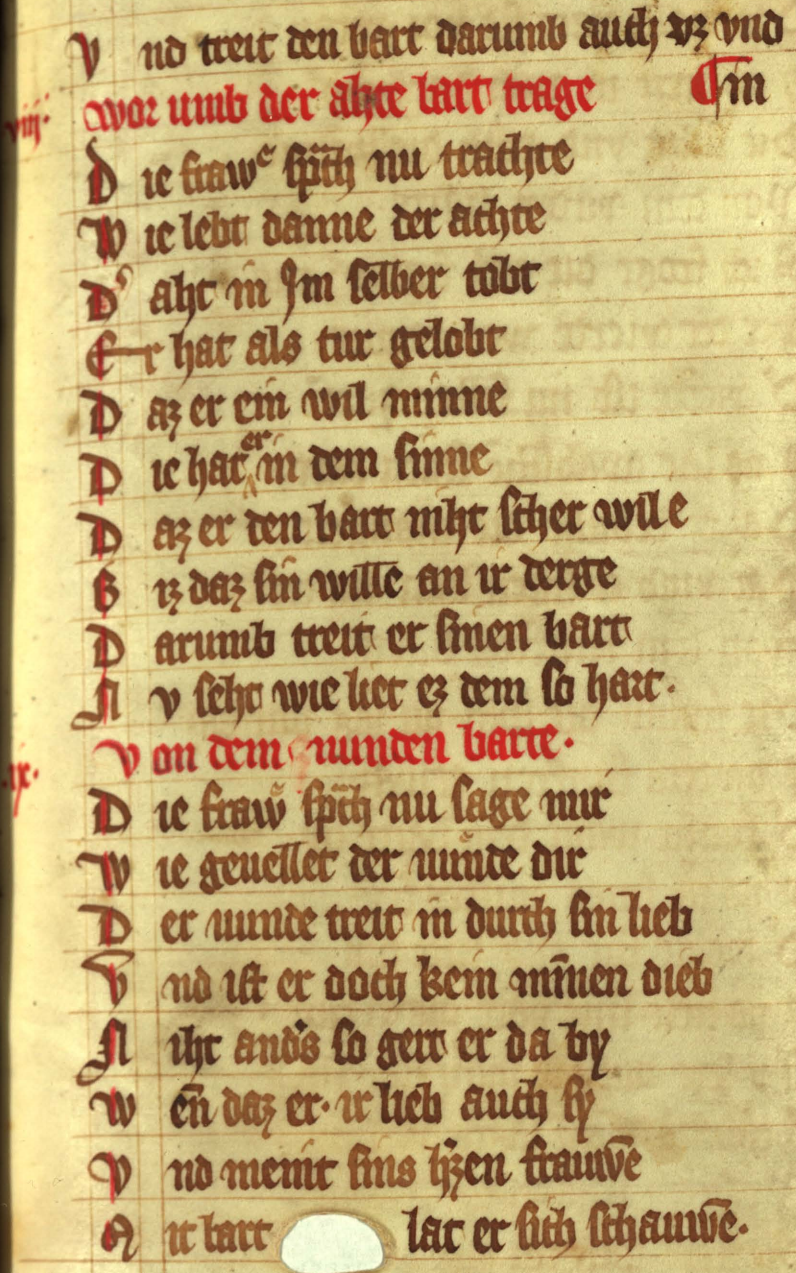 Vnd treit den bart darumb auch vz vnd
viij· Wor umb der ahte bart trage ¶in
Die frawe sp̄ch nu trachte
Wie lebt danne der achte
D' aht in Jm selber tobt
Er hat als tur gelobt
Daz er ein wil minne
Die hat er in dem sinne
Daz er den bart niht scher wile
Biz daz sin wille an ir derge
Darumb treit er sinen bart
Nv seht wie liet ez dem so hart·
·ix· Von dem nunden barte·
Die fraw sp̄ch nu sage mir
Wie geuellet der nunde dir
Der nunde treit in durch sin lieb
Vnd ist er doch kein mīnen dieb
Niht and's so gert er da by
Wēn daz er· ir lieb auch sy
Vnd menit sins h'zen frauwē
Mit bart lat er sich schauwē·